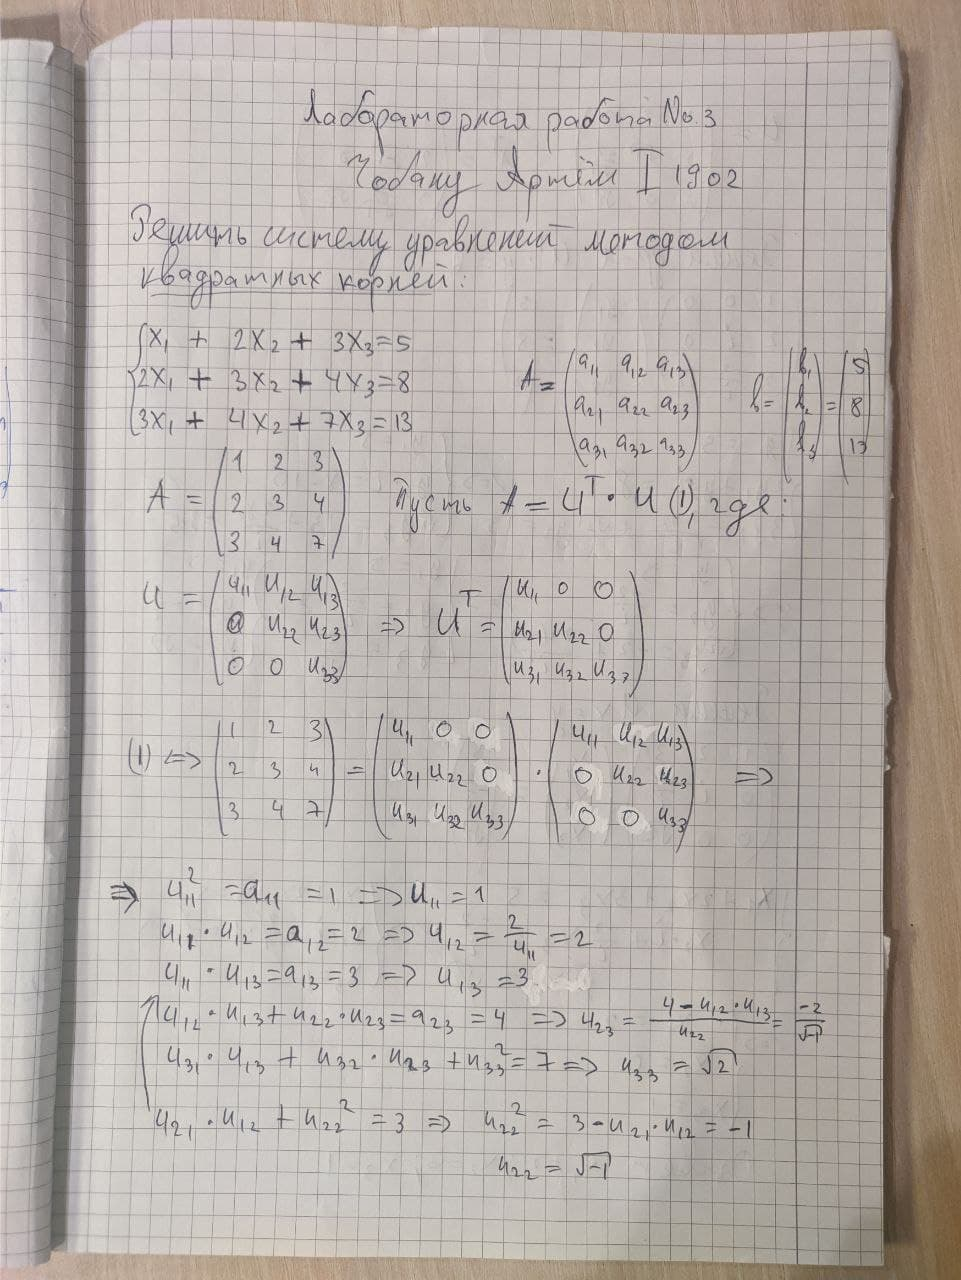 Лабораторная работа No.3
Чобану Артём I 1902
Решить систему уравнений методом
квадратных корней:
x₁ + 2x₂ + 3x₃ = 5
2x₁ + 3x₂ + 4x₃ = 8
3x₁ + 4x₂ + 7x₃ = 13
A = (a₁₁ a₁₂ a₁₃
a₂₁ a₂₂ a₂₃
a₃₁ a₃₂ a₃₃)
b = (b₁ b₂ b₃) = (5 8 13)
A = (1 2 3
2 3 4
3 4 7)
Пусть A = Uᵀ · U (1), где:
U = (u₁₁ u₁₂ u₁₃
0 u₂₂ u₂₃
0 0 u₃₃)
=> Uᵀ = (u₁₁ 0 0
u₂₁ u₂₂ 0
u₃₁ u₃₂ u₃₃)
(1) <=> (1 2 3
2 3 4
3 4 7)
= (u₁₁ 0 0
u₂₁ u₂₂ 0
u₃₁ u₃₂ u₃₃)
· (u₁₁ u₁₂ u₁₃
0 u₂₂ u₂₃
0 0 u₃₃) =>
=> u₁₁² = a₁₁ = 1 => u₁₁ = 1
u₁₁ · u₁₂ = a₁₂ = 2 => u₁₂ = 2/u₁₁ = 2
u₁₁ · u₁₃ = a₁₃ = 3 => u₁₃ = 3
u₁₂ · u₁₃ + u₂₂ · u₂₃ = a₂₃ = 4 => u₂₃ = (4 - u₁₂ · u₁₃)/u₂₂ = -2/√-1
u₃₁ · u₁₃ + u₃₂ · u₂₃ + u₃₃² = 7 => u₃₃ = √2
u₂₁ · u₁₂ + u₂₂² = 3 => u₂₂² = 3 - u₂₁ · u₁₂ = -1
u₂₂ = √-1